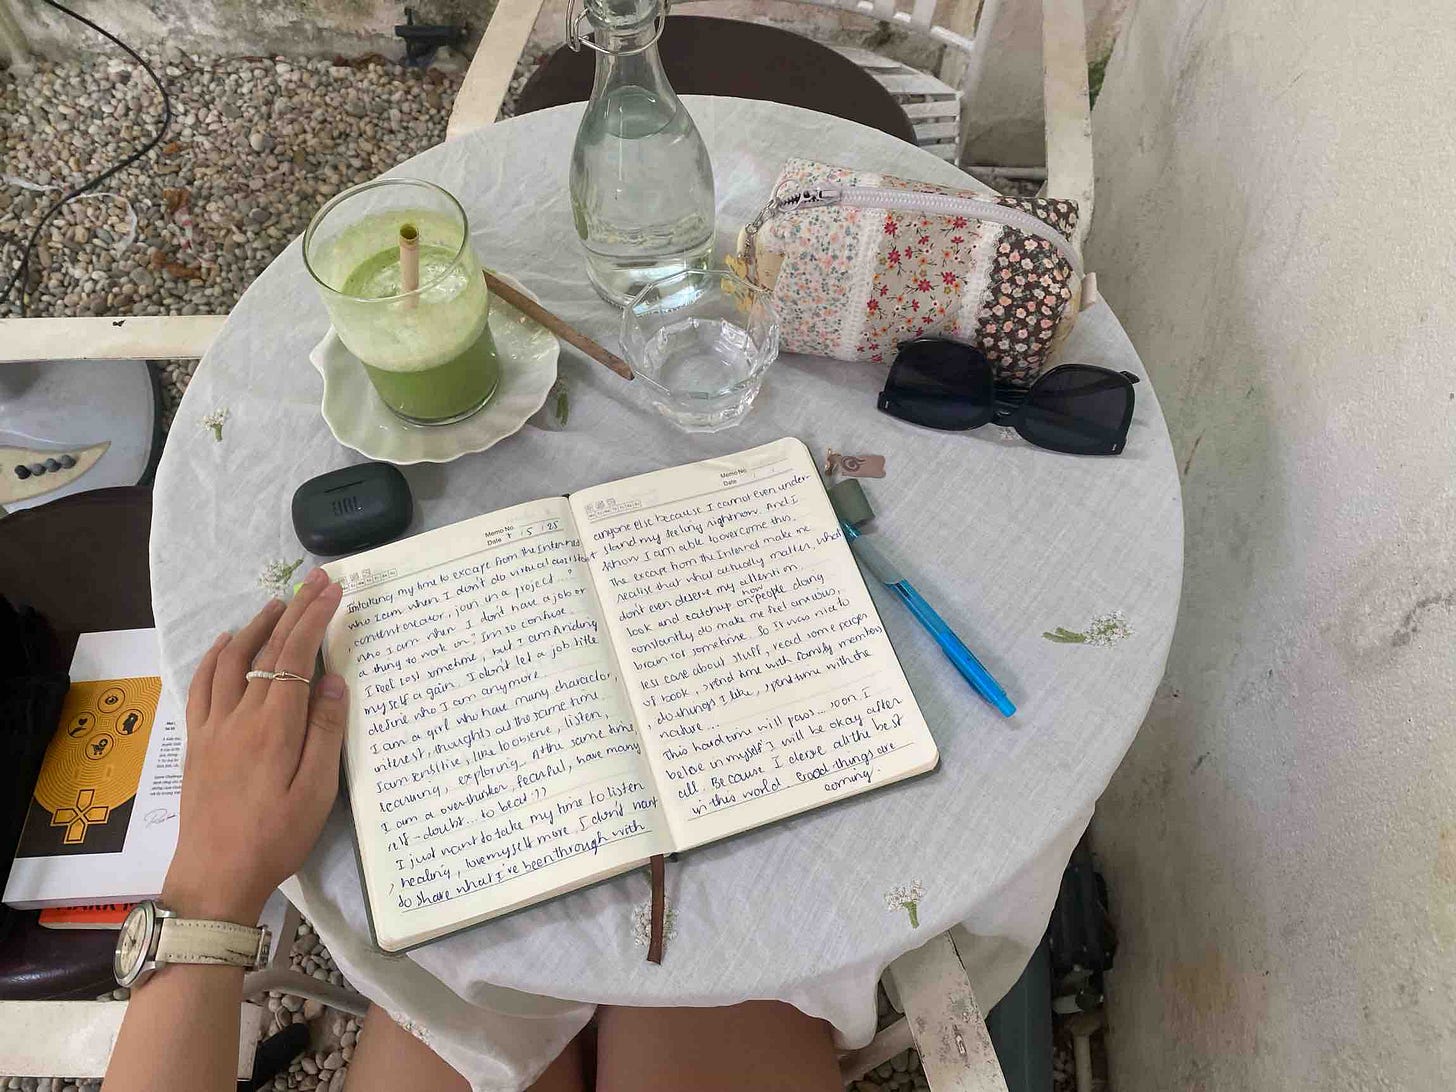 JBL
Memo No.
Date 7 / 5 / 25
I'm taking my time to escape from the Internet
who I am when I don't do virtual assistant
, content creator, join in a project...?
Who I am when I don't have a job or
a thing to work on? I'm so confuse.
I feel lost sometime, but I am finding
myself again. I don't let a job title
define who I am anymore.
I am a girl who have many character,
interest, thoughts at the same time.
I am sensitive, like to observe, listen,
learning, exploring... At the same time,
I am a overthinker, fearful, have many
self-doubt... to beat :))
I just want to take my time to listen
, healing, love myself more. I don't want
to share what I've been through with
Memo No.
Date / /
anyone else because I cannot even under-
stand my feeling right now. And I
know I am able to overcome this.
The escape from the Internet make me
realise that what actually matter, what
don't even deserve my attention.
Look and catchup on how people doing
constantly do make me feel anxious,
brain rot sometime. So it was nice to
less care about stuff, read some pages
of book, spend time with family members
, do things I like, spend time with the
nature...
This hard time will pass... soon. I
believe in myself I will be okay after
all. Because I deserve all the best
in this world. Good things are
coming.